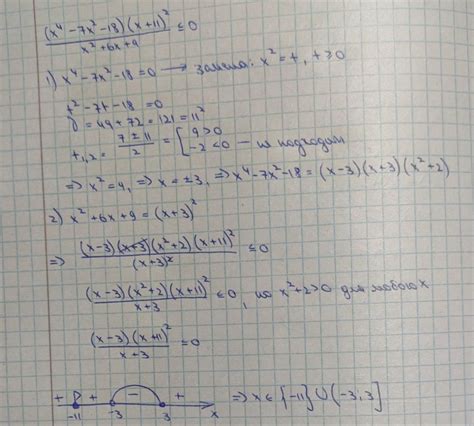 (x⁴ - 7x² - 18)(x + 11)² / x² + 6x + 9 ≤ 0
1) x⁴ - 7x² - 18 = 0 → замена: x² = t, t ≥ 0
t² - 7t - 18 = 0
D = 49 + 72 = 121 = 11²
t₁,₂ = 7 ± 11 / 2 = [ 9 > 0
-2 < 0 — не подходит
⇒ x² = 9, ⇒ x = ±3, ⇒ x⁴ - 7x² - 18 = (x - 3)(x + 3)(x² + 2)
2) x² + 6x + 9 = (x + 3)²
⇒ (x - 3)(x + 3)(x² + 2)(x + 11)² / (x + 3)² ≤ 0
(x - 3)(x² + 2)(x + 11)² / x + 3 ≤ 0, но x² + 2 > 0 для любого x
(x - 3)(x + 11)² / x + 3 ≤ 0
+ + - +
-11 -3 3 x ⇒ x ∈ {-11} ∪ (-3, 3]